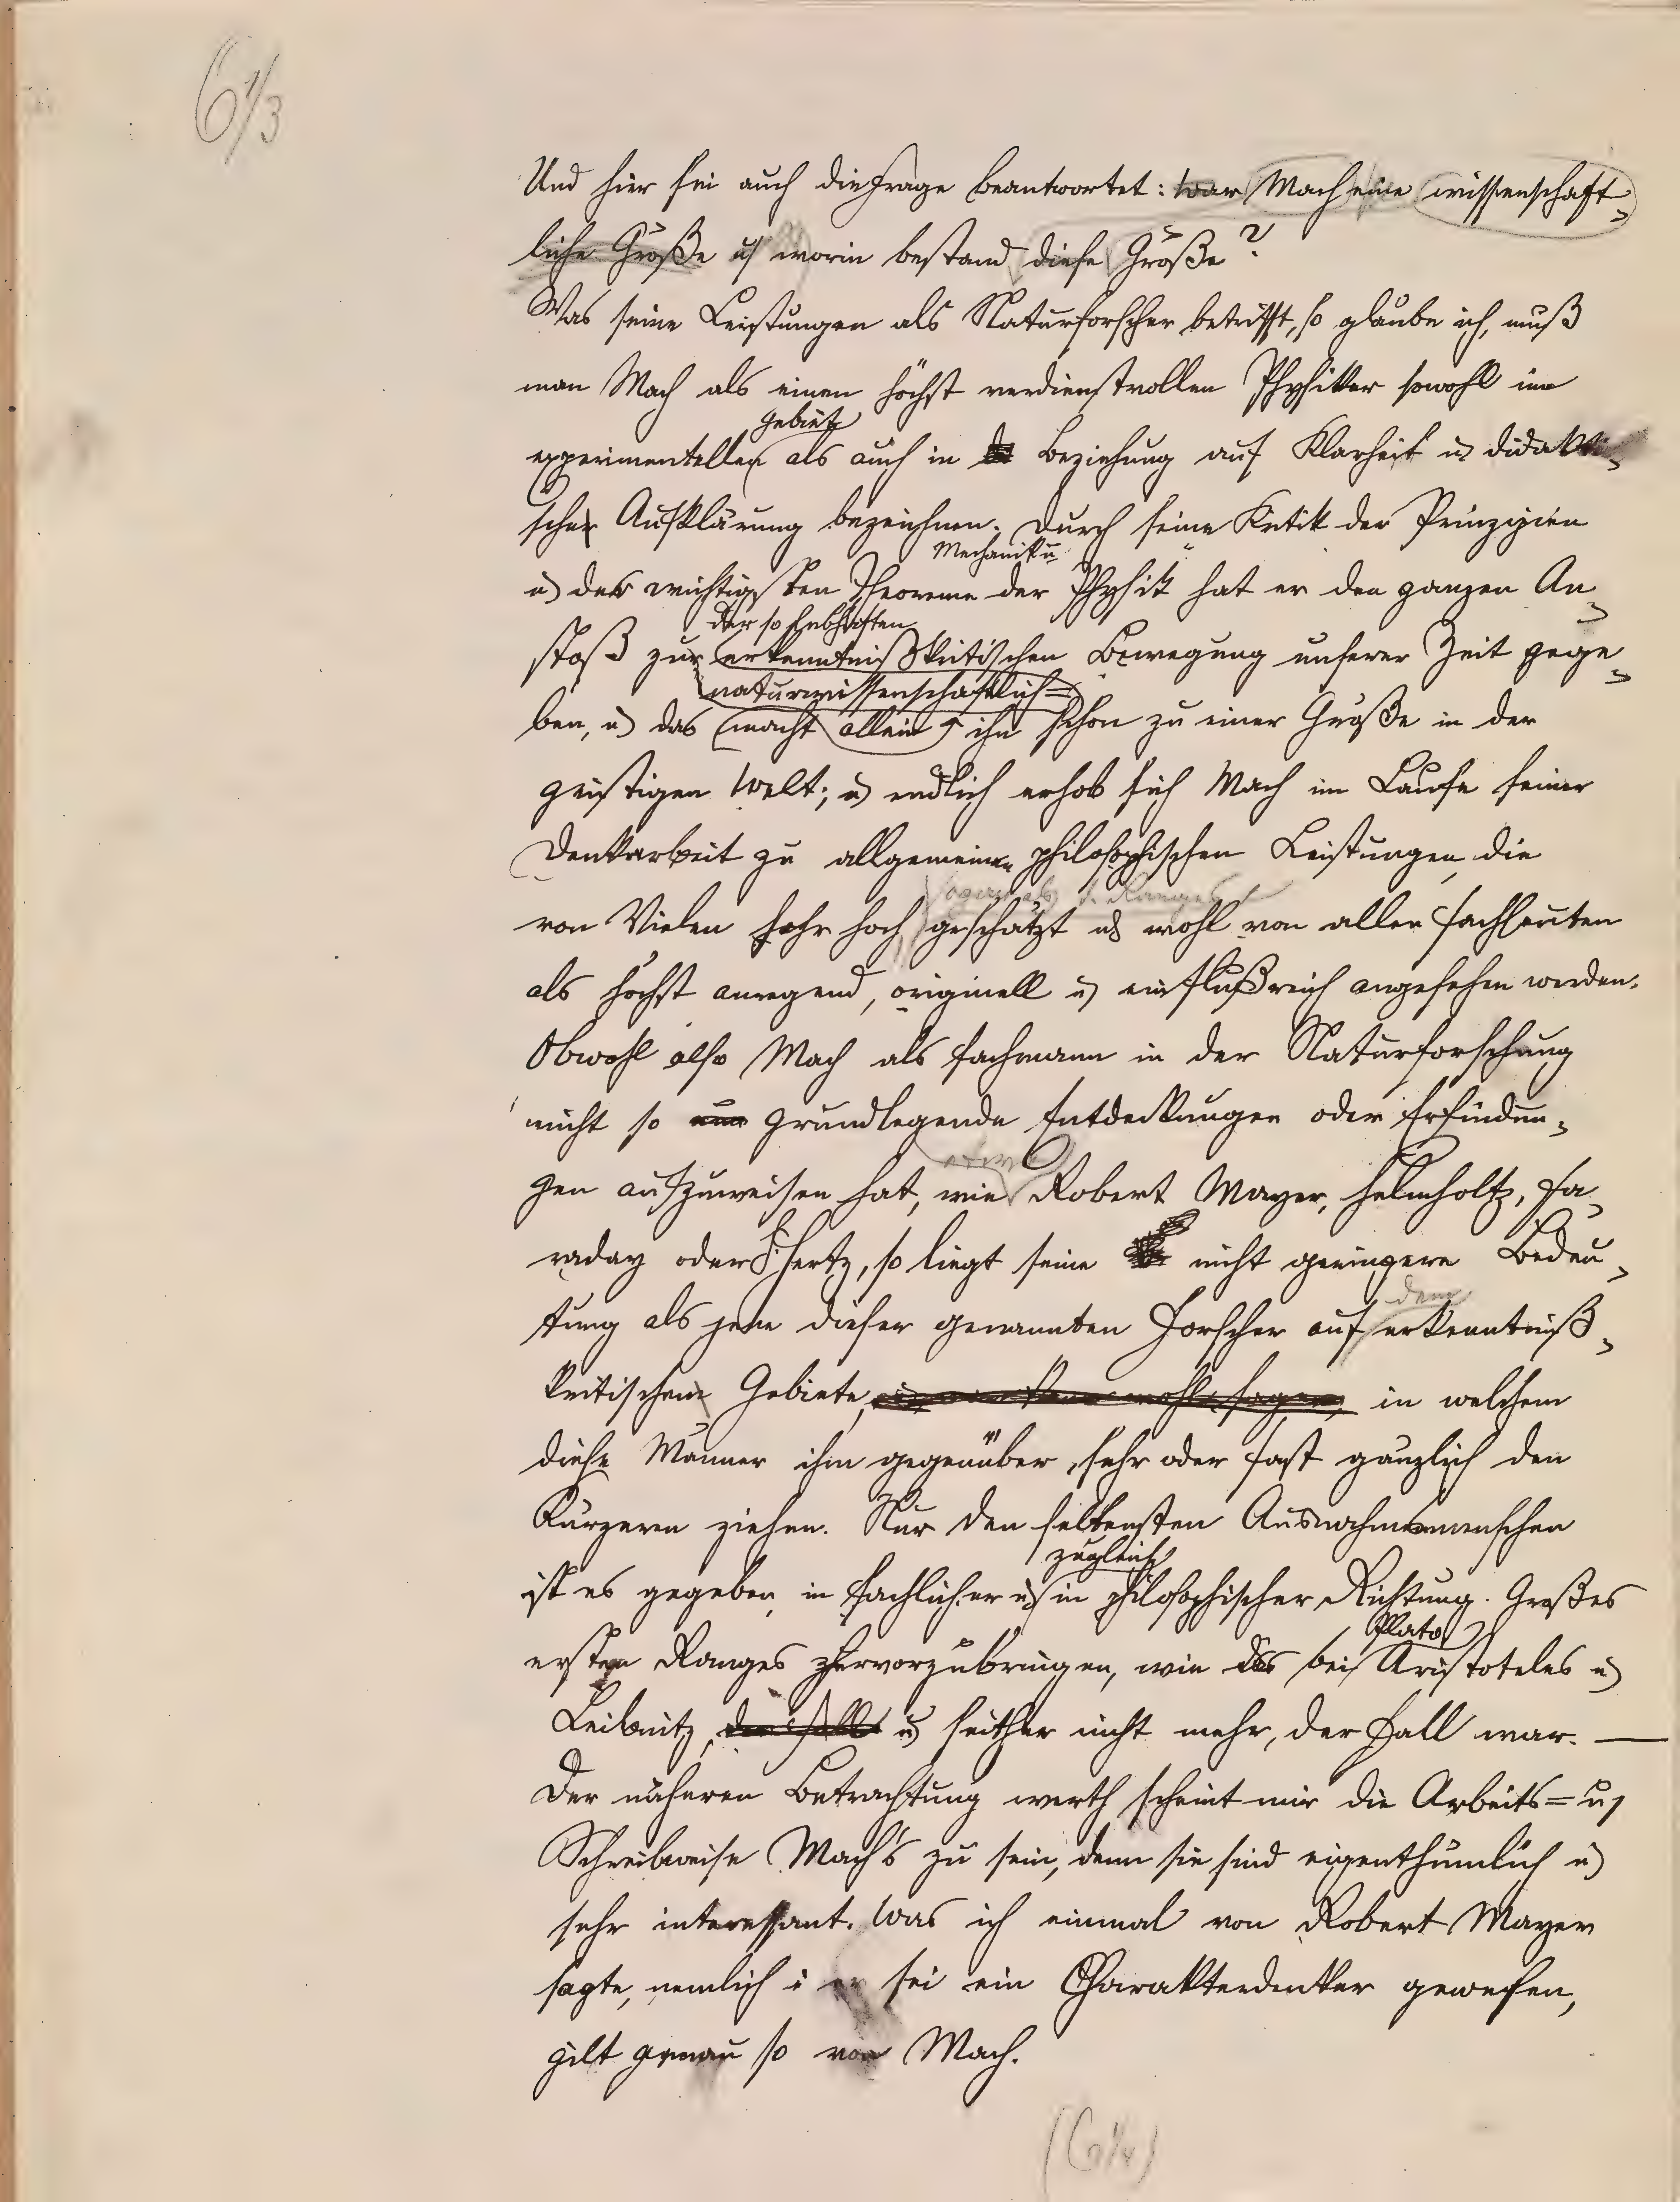 6 1/3
Und hier sei auch die Frage beantwortet: war Mach eine wissenschaft-
liche Größe u worin bestand diese Größe?
Was seine Leistungen als Naturforscher betrifft, so glaube ich, muß
man Mach als einen höchst verdienstvollen Physiker sowohl im
Gebiete
experimentellen als auch in Beziehung auf Klarheit u didakti-
scher Aufklärung bezeichnen. Durch seine Kritik der Prinzipien
Mechanik u
u der wichtigsten Theoreme der Physik hat er den ganzen An-
der so lebhaften
stoß zur erkenntnißkritischen Bewegung unserer Zeit gege-
naturwissenschaftlich=
ben, u das macht allein ihn schon zu einer Größe in der
geistigen Welt; u endlich erhob sich Mach im Laufe seiner
Denkarbeit zu allgemeinen philosophischen Leistungen, die
sogar als 1. Ranges
von Vielen sehr hoch geschätzt u wohl von allen Fachleuten
als höchst anregend, originell u einflußreich angesehen werden.
Obwohl also Mach als Fachmann in der Naturforschung
nicht so grundlegende Entdeckungen oder Erfindun-
etwa
gen aufzuweisen hat, wie Robert Mayer, Helmholtz, Fa-
raday oder H. Hertz, so liegt seine nicht geringere Bedeu-
dem
tung als jene dieser genannten Forscher auf erkenntniß-
kritischem Gebiete, in welchem
diese Männer ihm gegenüber sehr oder fast gänzlich den
Kürzeren ziehen. Nur den seltensten Ausnahmsmenschen
zugleich
ist es gegeben, in fachlicher u in philosophischer Richtung Großes
Plato
ersten Ranges hervorzubringen, wie das bei Aristoteles u
Leibnitz, u seither nicht mehr, der Fall war. —
Der näheren Betrachtung werth scheint mir die Arbeits= u
Schreibweise Mach's zu sein, denn sie sind eigenthümlich u
sehr interessant. Was ich einmal von Robert Mayer
sagte, nemlich: er sei ein Charakterdenker gewesen,
gilt genau so von Mach.
(6 1/4)